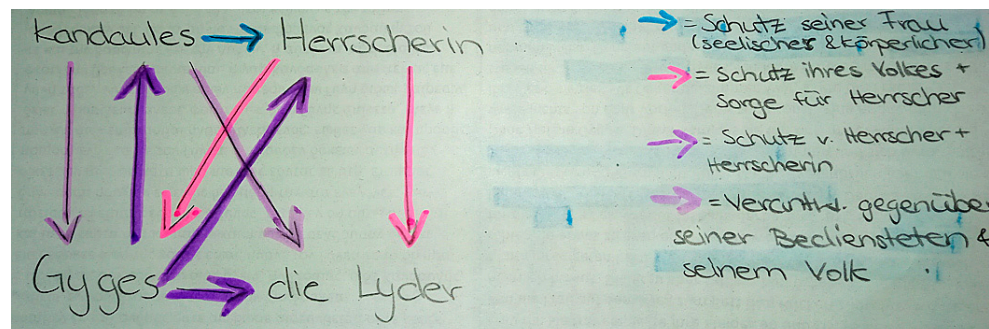 Kandaules Herrscherin
Gyges die Lyder
= Schutz seiner Frau
(seelischer & körperlicher)
= Schutz ihres Volkes +
Sorge für Herrscher
= Schutz v. Herrscher +
Herrscherin
= Verantw. gegenübe
seiner Bediensteten &
seinem Volk